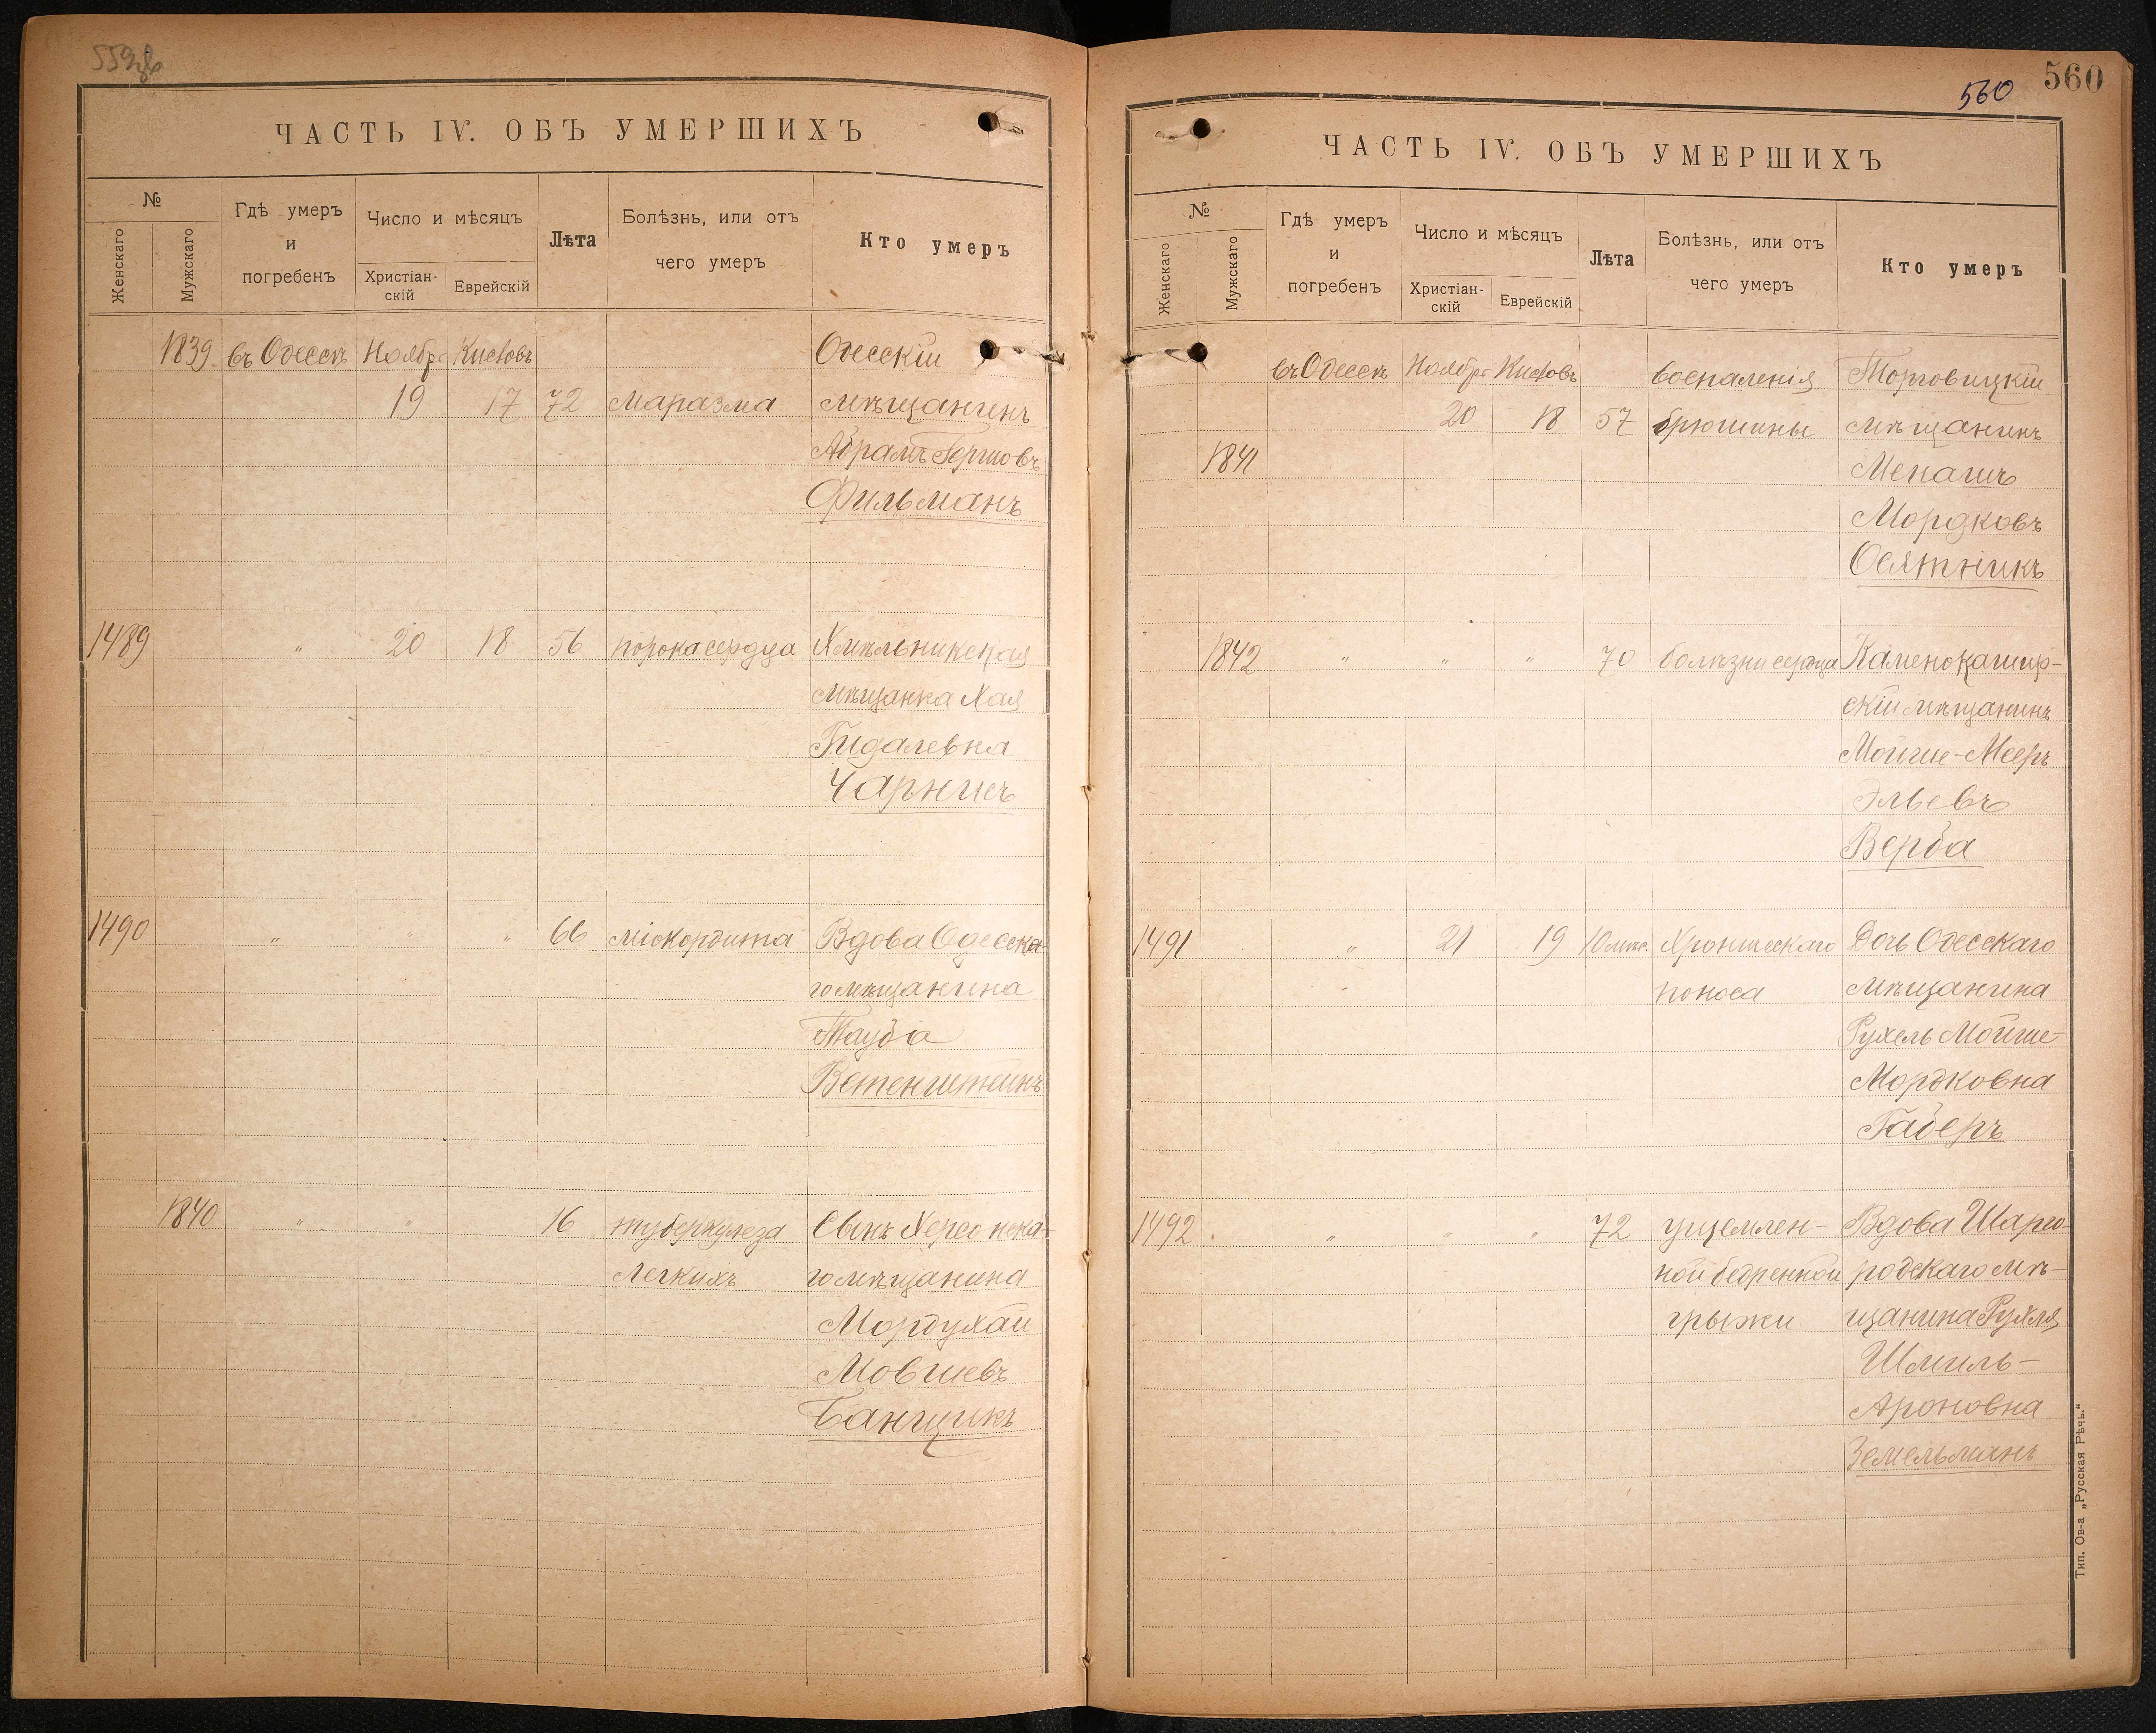 559об
ЧАСТЬ IV. ОБЪ УМЕРШИХЪ
№
Женскаго
Мужскаго
Гдѣ умеръ
и
погребенъ
Число и мѣсяцъ
Христіан-
скій
Еврейскій
Лѣта
Болѣзнь, или отъ
чего умеръ
Кто умеръ
1839 въ Одессѣ Ноября Кисловъ Одесскій
19 17 72 маразма мѣщанинъ
Абрамъ Гершовъ
Фильманъ
1489 " 20 18 56 порока сердца Хмѣльникская
мѣщанка Хая
Гидалевна
Чарнисъ
1490 " " " 66 міокордита Вдова Одесска-
го мѣщанина
Тауба
Ветенштейнъ
1840 " " 16 туберкулеза Сынъ Херсонска-
легкихъ го мѣщанина
Мордухай
Мовшевъ
Банщикъ
560
560
ЧАСТЬ IV. ОБЪ УМЕРШИХЪ
№
Женскаго
Мужскаго
Гдѣ умеръ
и
погребенъ
Число и мѣсяцъ
Христіан-
скій
Еврейскій
Лѣта
Болѣзнь, или отъ
чего умеръ
Кто умеръ
въ Одессѣ Ноября Кисловъ воспаленія Торговицкій
20 18 57 брюшины мѣщанинъ
1841 Менашъ
Мордковъ
Осятникъ
1842 " " " 70 болѣзни сердца Каменокашир-
скій мѣщанинъ
Мойше-Мееръ
Эльевъ
Верба
1491 " 21 19 10 мѣс. Хроническаго Дочь Одесскаго
поноса мѣщанина
Рухель Мойше-
Мордковна
Габеръ
1492 " " " 72 ущемлен- Вдова Шарго-
ной бедренной родскаго мѣ-
грыжи щанина Рухля
Шмиль-
Ароновна
Земельманъ
Тип. Ов-а „Русская Рѣчь."